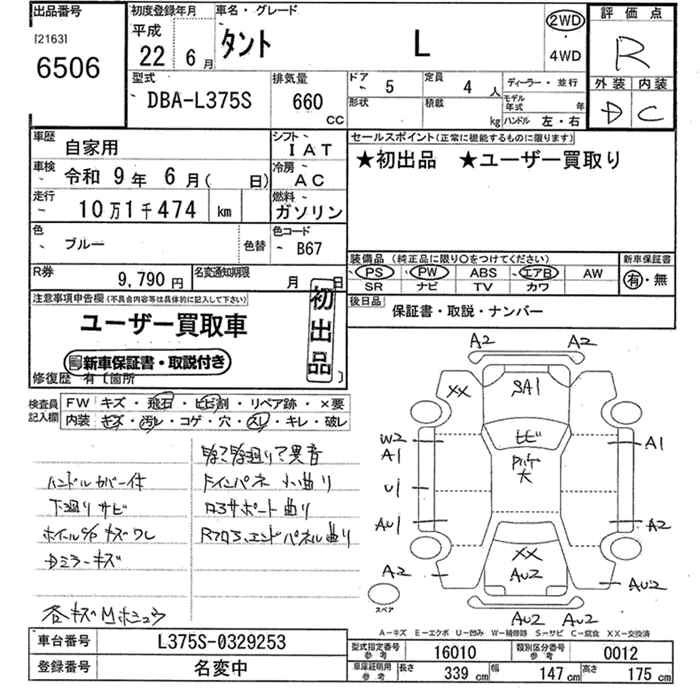 出品番号
[2163]
6506
初度登録年月
平成
22 年 6 月
車名・グレード
タント L
2WD
・
4WD
評価点
R
外装 内装
D C
型式
DBA-L375S
排気量
660 CC
ドア 5
定員 4 人
形状
積載 kg
ディーラー・並行
モデル年式 年
ハンドル 左・右
車歴 自家用
シフト IAT
車検 令和 9 年 6 月 ( 日)
冷房 AC
走行 10万1千474 km
燃料 ガソリン
色 ブルー 色替
色コード B67
R券 9,790 円
名変通知期限 月 日
セールスポイント(正常に機能するものに限ります)
★初出品 ★ユーザー買取り
装備品 (純正品に限り○をつけてください)
PS PW ABS エアB AW
SR ナビ TV カワ
新車保証書
有・無
後日品 保証書・取説・ナンバー
注意事項申告欄(不具合内容等は具体的に記入して下さい)
ユーザー買取車
記新車保証書・取説付き
初出品
修復歴 有 〔箇所 〕
検査員記入欄
FW キズ・飛石・ヒビ割・リペア跡・×要
内装 キズ・汚レ・コゲ・穴・スレ・キレ・破レ
ハンドルカバー付
下廻りサビ
キズ ワレ
Dミラーキズ
各キズ M ホシュウ
異音
インパネ 小曲り
ロアサポート曲り
Rフロア、エンドパネル曲り
A2 A2
XX SA1
ヒビ
W2
A1
A1
大
U1
AU1 A2
XX
A2 AU2 AU2
スペア
AU2 AU2
A-キズ E-エクボ U-凹み W-補修跡 S-サビ C-腐食 XX-交換済
車台番号 L375S-0329253
登録番号 名変中
型式指定番号 参考 16010
類別区分番号 参考 0012
車庫証明用 参考 長さ 339 cm 幅 147 cm 高さ 175 cm